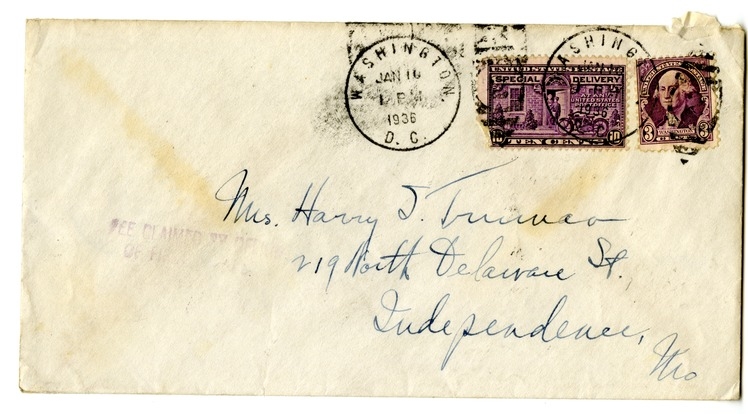 WASHINGTON,
JAN 16
1936
D. C.
WASHING
UNITED STATES POSTAGE
SPECIAL DELIVERY
UNITED STATES
POST OFFICE
10 TEN CENTS 10
3 WASHINGTON 3
FEE CLAIMED BY
OF
Mrs. Harry S. Truman
219 North Delaware St.
Independence,
Mo